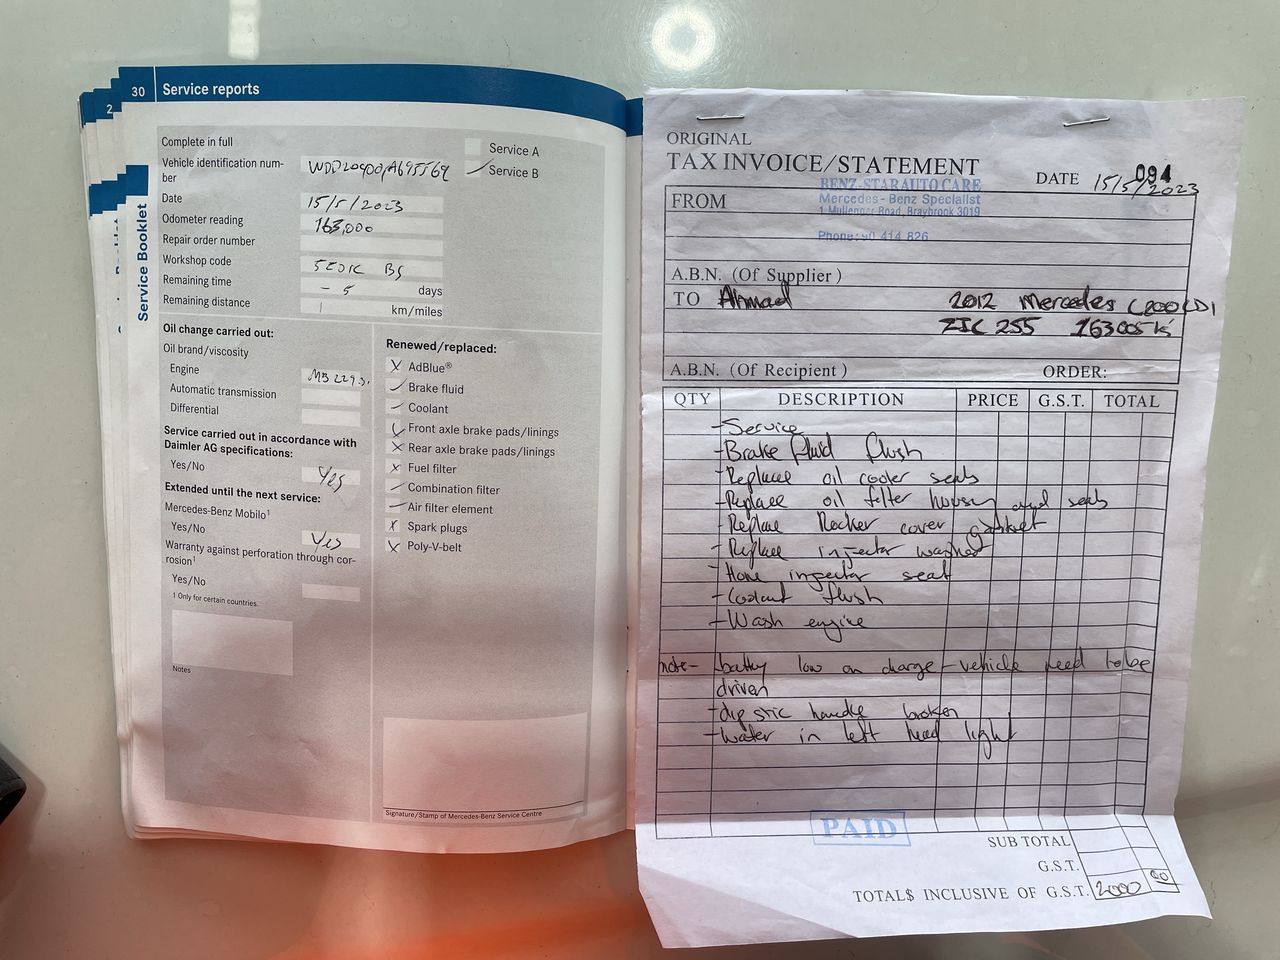 30 Service reports
2
Service Booklet
Complete in full
Service A
Vehicle identification num-
ber
Service B
Date 15/5/2023
Odometer reading 163,000
Repair order number
Workshop code
Remaining time - 5 days
Remaining distance km/miles
Oil change carried out:
Oil brand/viscosity
Engine
Automatic transmission
Differential
Service carried out in accordance with
Daimler AG specifications:
Yes/No Yes
Extended until the next service:
Mercedes-Benz Mobilo¹
Yes/No Yes
Warranty against perforation through cor-
rosion¹
Yes/No
1 Only for certain countries.
Notes
Renewed/replaced:
X AdBlue®
Brake fluid
Coolant
Front axle brake pads/linings
X Rear axle brake pads/linings
X Fuel filter
Combination filter
Air filter element
X Spark plugs
X Poly-V-belt
Signature/Stamp of Mercedes-Benz Service Centre
ORIGINAL
TAX INVOICE/STATEMENT
094
DATE 15/5/2023
FROM BENZ-STAR AUTO CARE
Mercedes-Benz Specialist
Road, Braybrook 3019
Phone: 90 414 826
A.B.N. (Of Supplier)
TO Ahmad 2012 Mercedes C200 CDI
ZIC 255 163005k
A.B.N. (Of Recipient) ORDER:
QTY DESCRIPTION PRICE G.S.T. TOTAL
- Service
- Brake fluid flush
- Replace oil cooler seals
- Replace oil filter housing and seals
- Replace Rocker cover gasket
- Replace injector washer
- Hone injector seat
- Coolant flush
- Wash engine
note - battery low on charge - vehicle need to be
driven
- dip stic handle broken
- water in left head light
PAID
SUB TOTAL
G.S.T.
TOTAL$ INCLUSIVE OF G.S.T. 2000 00